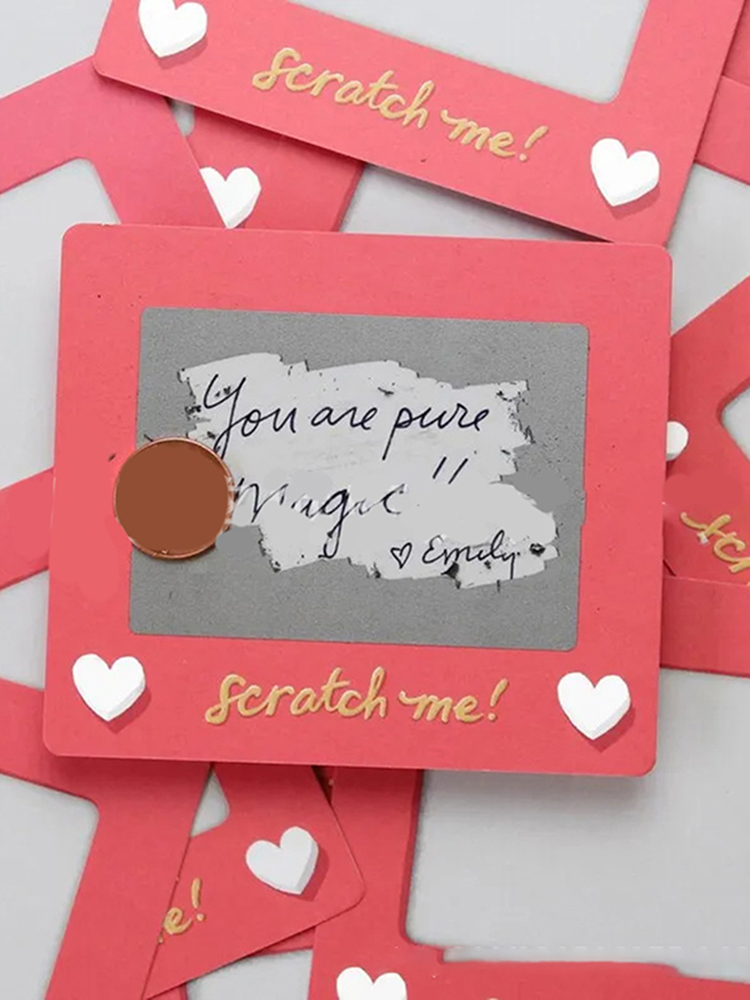 scratch me!
You are pure
magic"
♡ Emily
scratch me!
e!